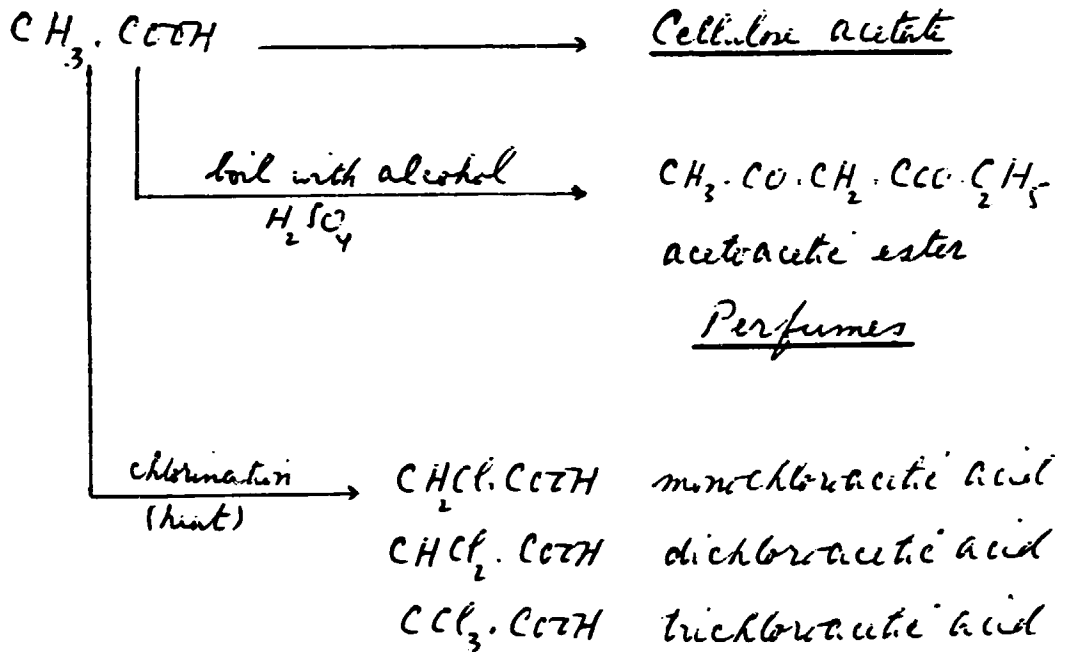 CH₃.COOH → Cellulose acetate
boil with alcohol
H₂SO₄
CH₃.CO.CH₂.COO.C₂H₅
acetoacetic ester
Perfumes
chlorination
(heat)
CH₂Cl.COOH monochloroacetic acid
CHCl₂.COOH dichloroacetic acid
CCl₃.COOH trichloroacetic acid